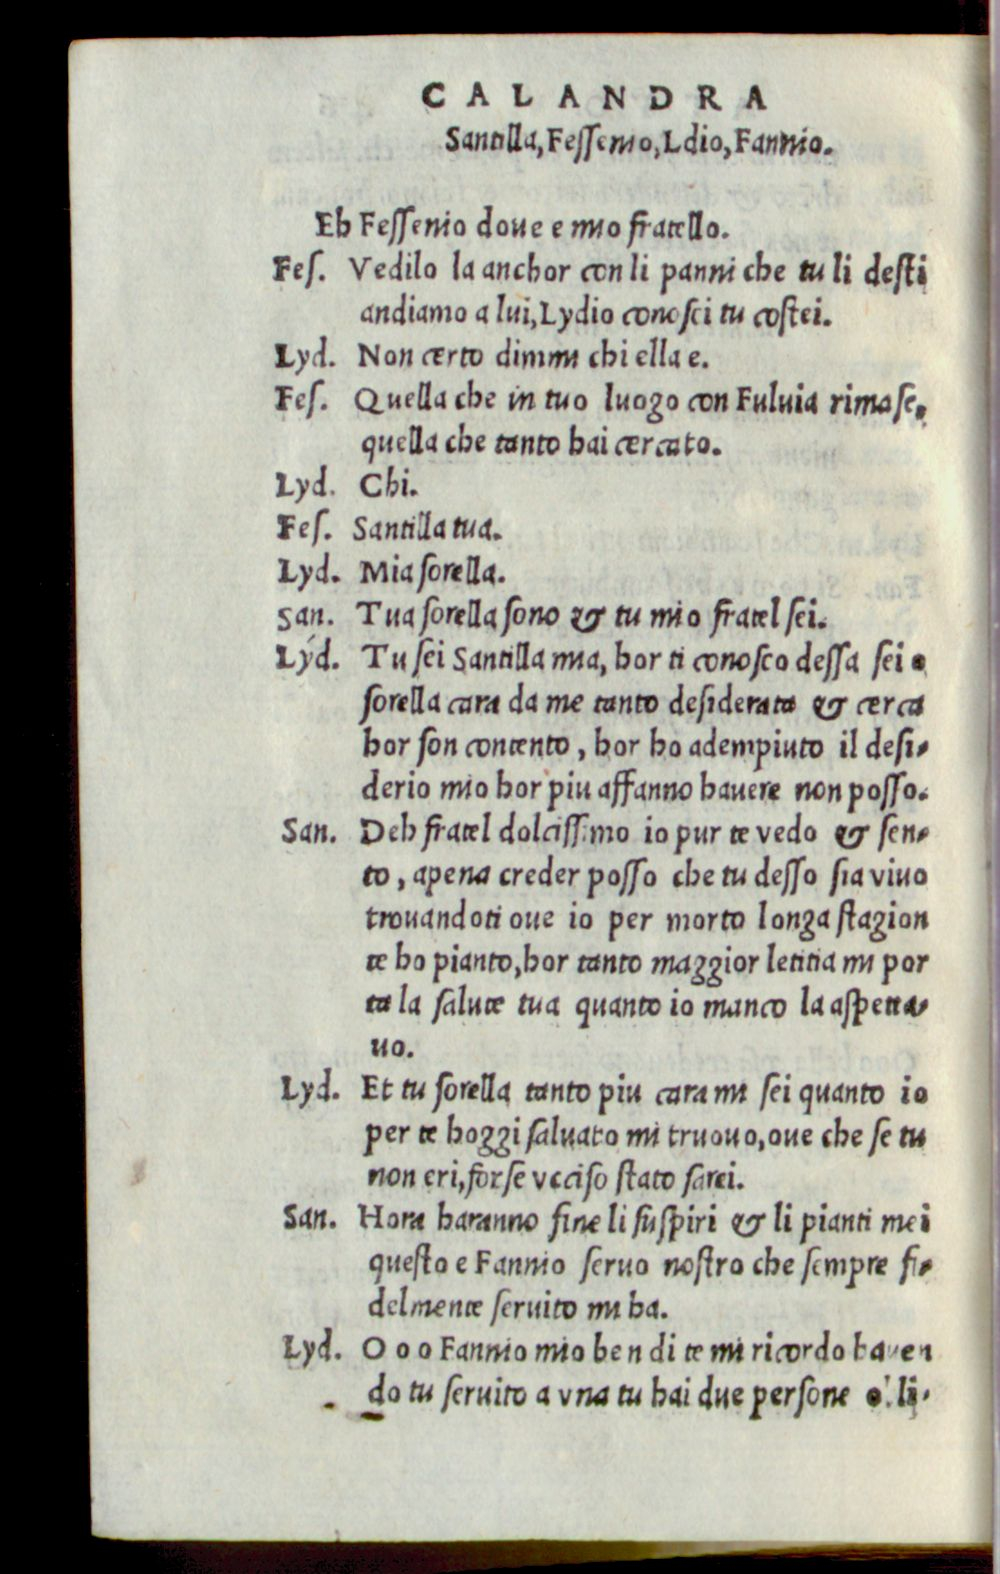 CALANDRA
Santilla, Fessenio, Ldio, Fannio.
Eh Fessenio doue e mio fratello.
Fes. Vedilo la anchor con li panni che tu li desti
andiamo a lui, Lydio conosci tu costei.
Lyd. Non certo dimmi chi ella e.
Fes. Quella che in tuo luogo con Fuluia rimase,
quella che tanto hai cercato.
Lyd. Chi.
Fes. Santilla tua.
Lyd. Mia sorella.
San. Tua sorella sono & tu mio fratel sei.
Lyd. Tu sei Santilla mia, hor ti conosco dessa sei o
sorella cara da me tanto desiderata & cerca
hor son contento, hor ho adempiuto il desi-
derio mio hor piu affanno hauere non posso.
San. Deh fratel dolcissimo io pur te vedo & sen-
to, apena creder posso che tu desso sia viuo
trouandoti oue io per morto longa stagion
te ho pianto, hor tanto maggior letitia mi por
ta la salute tua quanto io manco la aspetta-
uo.
Lyd. Et tu sorella tanto piu cara mi sei quanto io
per te hoggi saluato mi truouo, oue che se tu
non eri, forse vcciso stato sarei.
San. Hora haranno fine li suspiri & li pianti mei
questo e Fannio seruo nostro che sempre fi-
delmente seruito mi ha.
Lyd. O o o Fannio mio ben di te mi ricordo hauen
do tu seruito a vna tu hai due persone obli-